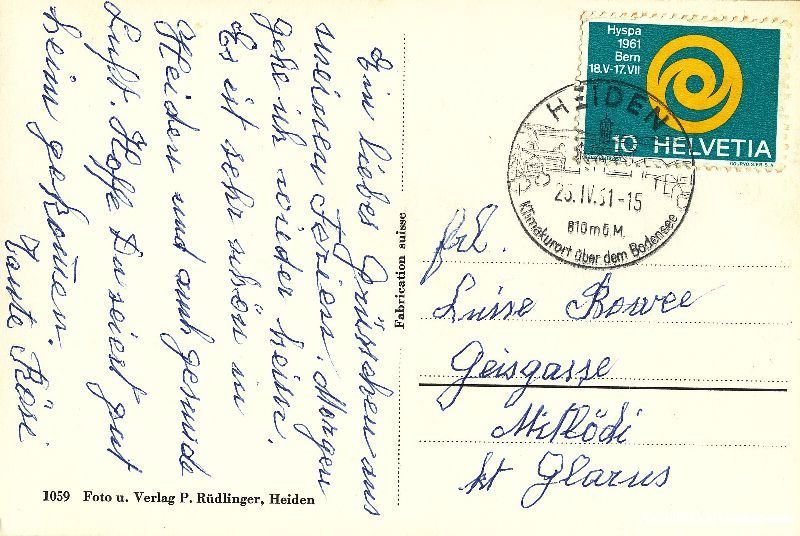 Ein liebes Grüsschen aus
meinen Ferien. Morgen
gehe ich wieder heim.
Es ist sehr schön in
Heiden und auch gesunde
Luft. Hoffe Du seiest gut
heim gekomen.
Tante Rösi
1059 Foto u. Verlag P. Rüdlinger, Heiden
Fabrication suisse
Hyspa
1961
Bern
18.V-17.VII
10 HELVETIA
HEIDEN
25.IV.61-15
810 m ü. M.
Klimakurort über dem Bodensee
Frl.
Luise
Geisgasse
Mitlödi
kt Glarus